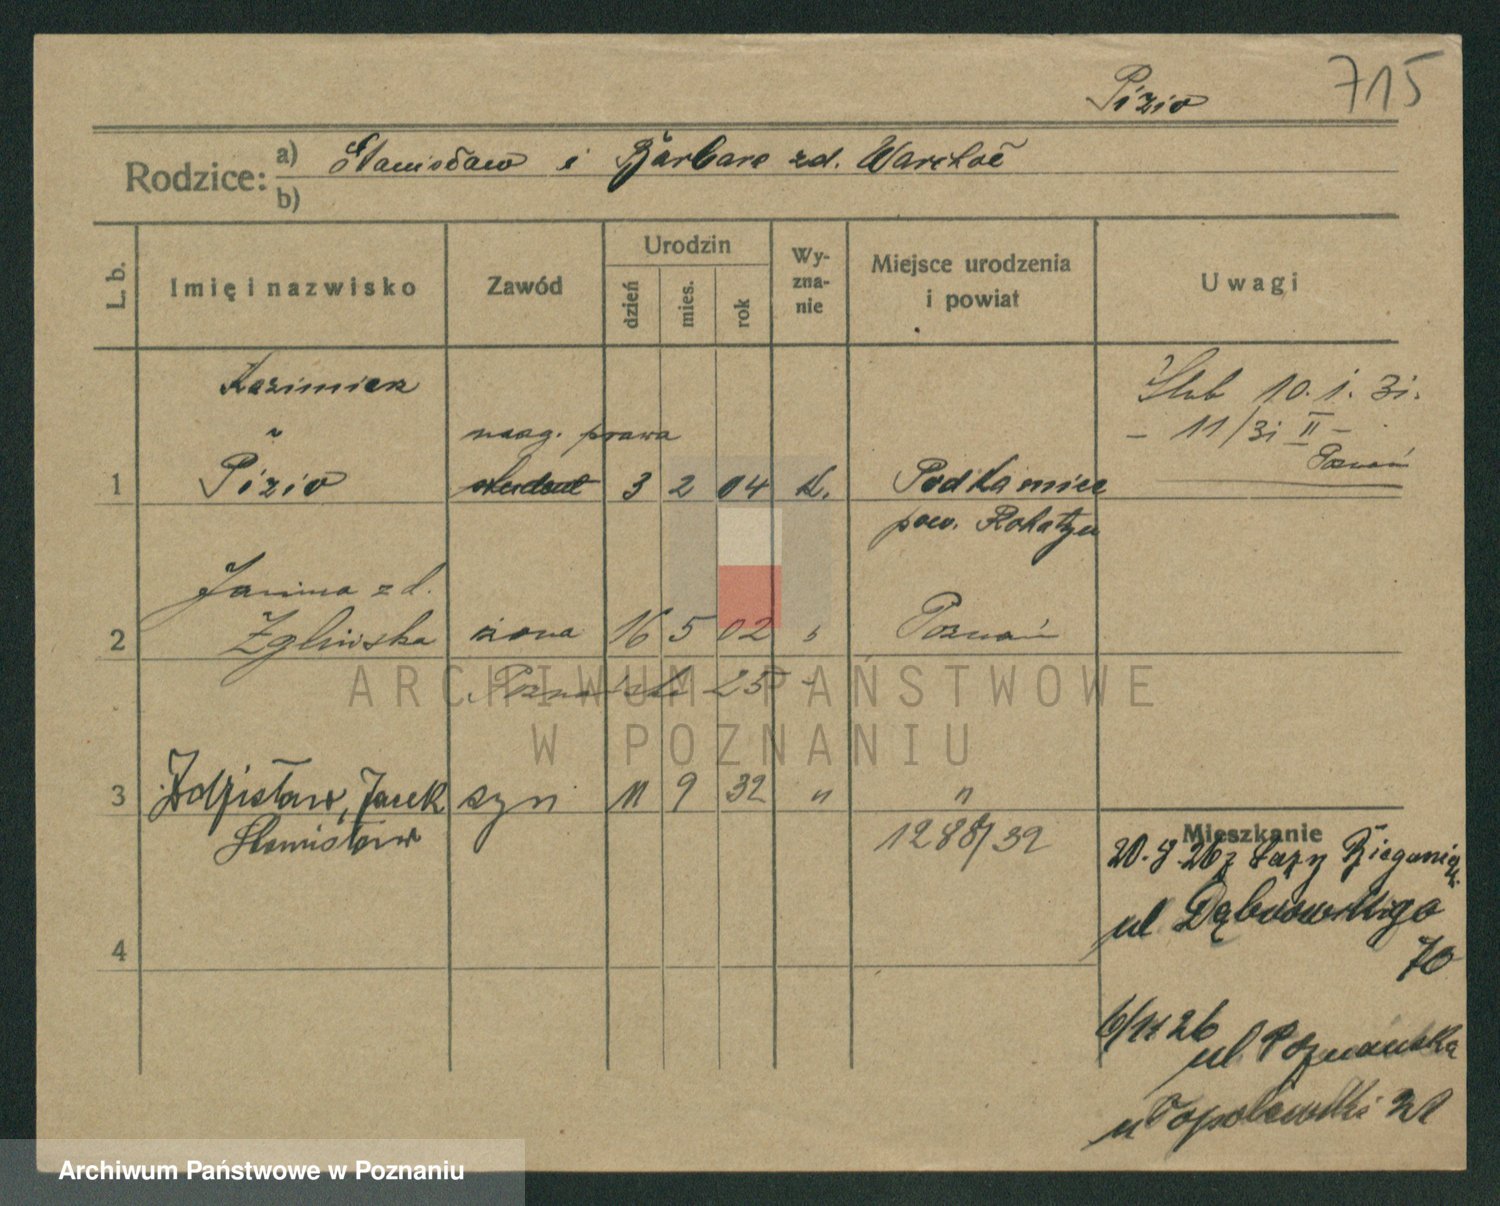 Pizio 715
Rodzice: a) Stanisław i Barbara zd. Warchoł
b)
L. b. Imię i nazwisko Zawód Urodzin dzień mies. rok Wyznanie Miejsce urodzenia i powiat Uwagi
Kazimierz
Ślub 10. 1. 31.
mag. prawa
– 11/31 II –
Poznań
1 Pizio student 3 2 04 k. Podkamień
pow. Rohatyn
Janina zd.
2 Zglińska żona 16 5 02 " Poznań
Poznańska 25
3 Zdzisław, Jacek syn 11 9 32 " "
Stanisław 1288/32
Mieszkanie
20. 8. 26 z Łazy
ul Dąbrowskiego
70
4
6/11 26
ul. Poznańska
u 21
ARCHIWUM PAŃSTWOWE
W POZNANIU
Archiwum Państwowe w Poznaniu